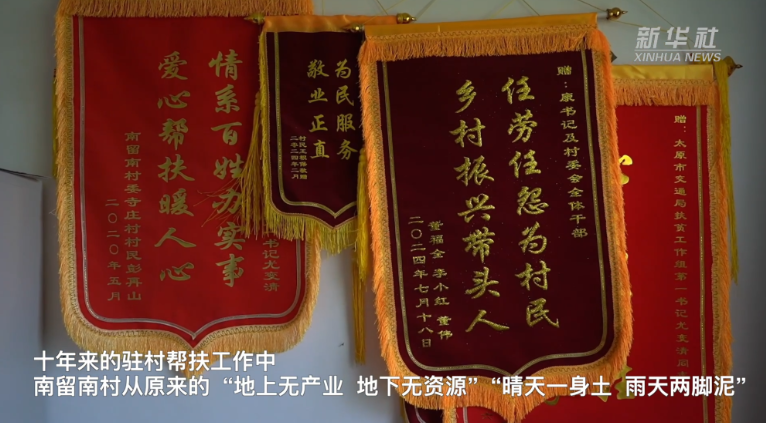 新华社
XINHUA NEWS
情系百姓办实事
爱心帮扶暖人心
南留南村委寺庄村村民彭再山
二〇二〇年五月
为民服务
敬业正直
二〇二四年二月
赠：康书记及村委会全体干部
任劳任怨为村民
乡村振兴带头人
董福全 李小红 董伟
二〇二四年七月十八日
赠：太原市交通局扶贫工作组第一书记尤变清同
十年来的驻村帮扶工作中
南留南村从原来的“地上无产业 地下无资源”“晴天一身土 雨天两脚泥”